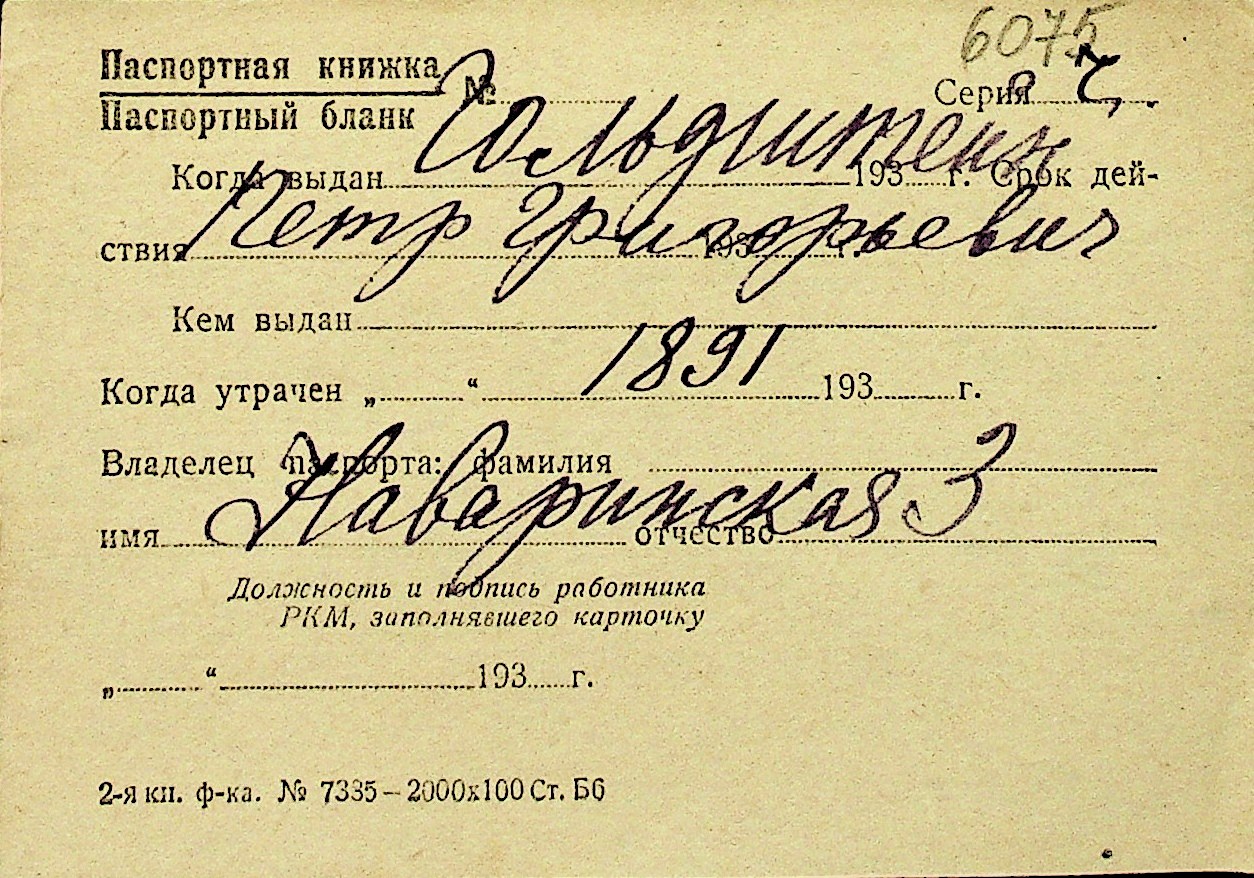 6075
Паспортная книжка
Паспортный бланк
№ Серия
Гольдштейн
Когда выдан 193 г. Срок дей-
Петр Григорьевич
ствия 193 г.
Кем выдан
1891
Когда утрачен „ “ 193 г.
Владелец паспорта: фамилия
Наваринская 3
имя отчество
Должность и подпись работника
РКМ, заполнявшего карточку
„ “ 193 г.
2-я кн. ф-ка. № 7335–2000х100 Ст. Б6